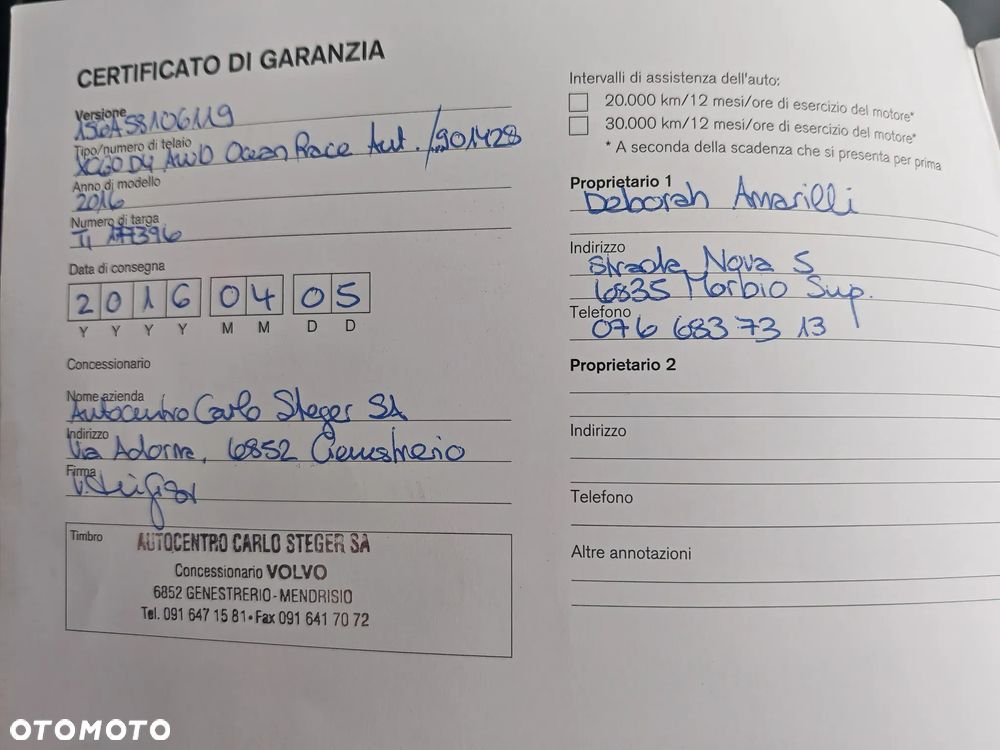 CERTIFICATO DI GARANZIA
Versione
156A58106119
Tipo/numero di telaio
XC60 D4 AWD Ocean Race Aut. /901428
Anno di modello
2016
Numero di targa
TI 177396
Data di consegna
2016 04 05
Y Y Y Y M M D D
Concessionario
Nome azienda
Autocentro Carlo Steger SA
Indirizzo
Via Adorna, 6852 Genestrerio
Firma
Timbro
AUTOCENTRO CARLO STEGER SA
Concessionario VOLVO
6852 GENESTRERIO-MENDRISIO
Tel. 091 647 15 81 • Fax 091 641 70 72
Intervalli di assistenza dell'auto:
20.000 km/12 mesi/ore di esercizio del motore*
30.000 km/12 mesi/ore di esercizio del motore*
* A seconda della scadenza che si presenta per prima
Proprietario 1
Deborah Amarilli
Indirizzo
Strada Nova 5
6835 Morbio Sup.
Telefono
076 683 73 13
Proprietario 2
Indirizzo
Telefono
Altre annotazioni
OTOMOTO